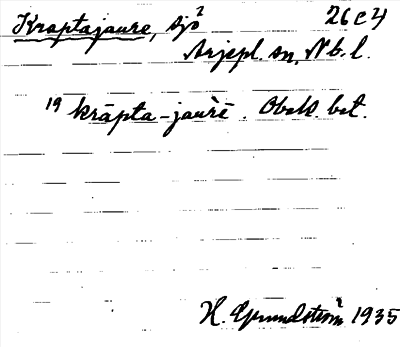 Kraptajaure, sjö 26 C 4
Arjepl. sn, Nb. l.
19 krāpta-jaùrē. Obek. bet.
H. Grundström 1935